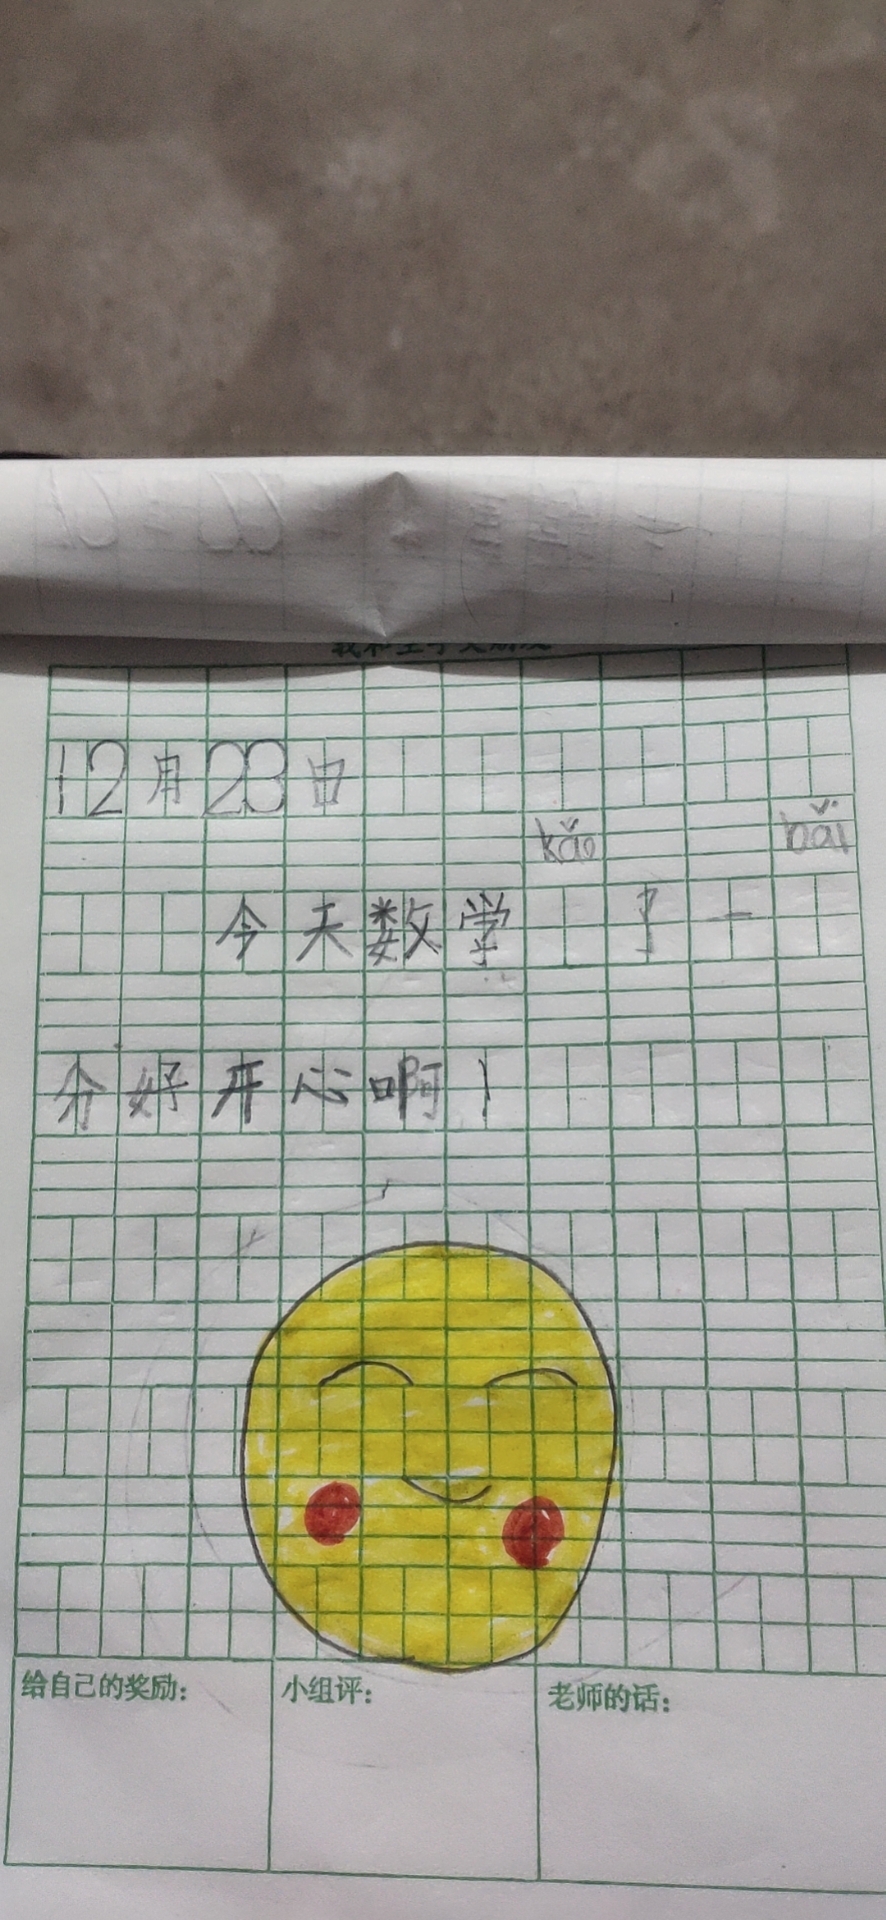 12月23日
kǎo bǎi
今天数学 了一
分好开心啊！
给自己的奖励： 小组评： 老师的话：